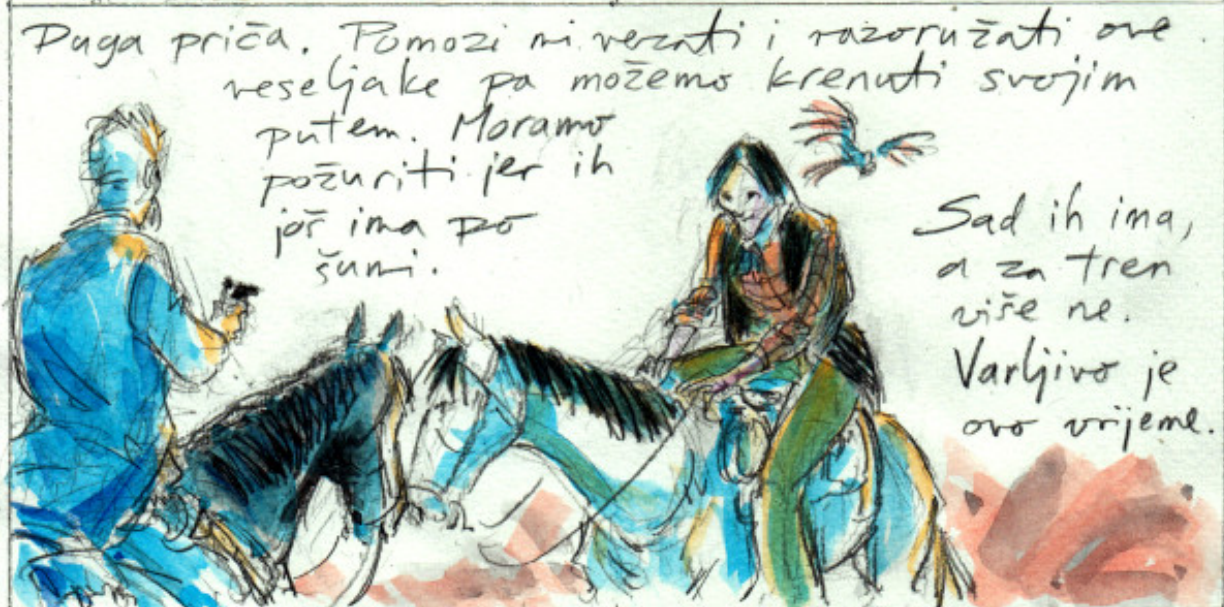 Duga priča. Pomozi mi vezati i razoružati ove
veseljake pa možemo krenuti svojim
putem. Moramo
požuriti jer ih
još ima po
šumi.
Sad ih ima,
a za tren
više ne.
Varljivo je
ovo vrijeme.